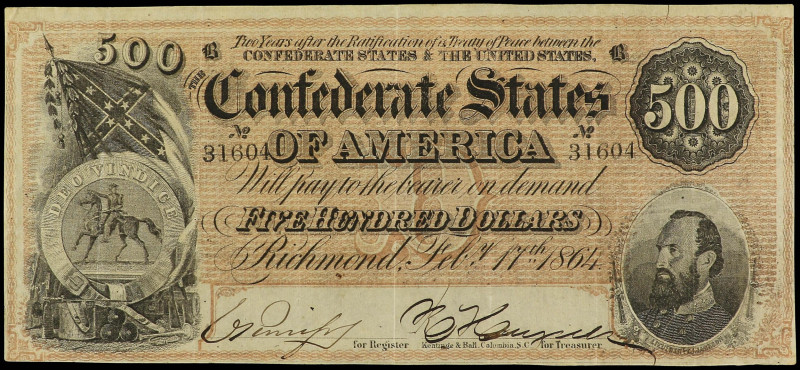 500 B Two Years after the Ratification of a Treaty of Peace between the B
CONFEDERATE STATES & THE UNITED STATES,
THIS
Confederate States 500
No No
31604 OF AMERICA 31604
DEO VINDICE
Will pay to the bearer on demand
FIVE HUNDRED DOLLARS
Richmond, Feby. 17th 1864
for Register Keatinge & Ball, Columbia, S.C. for Treasurer